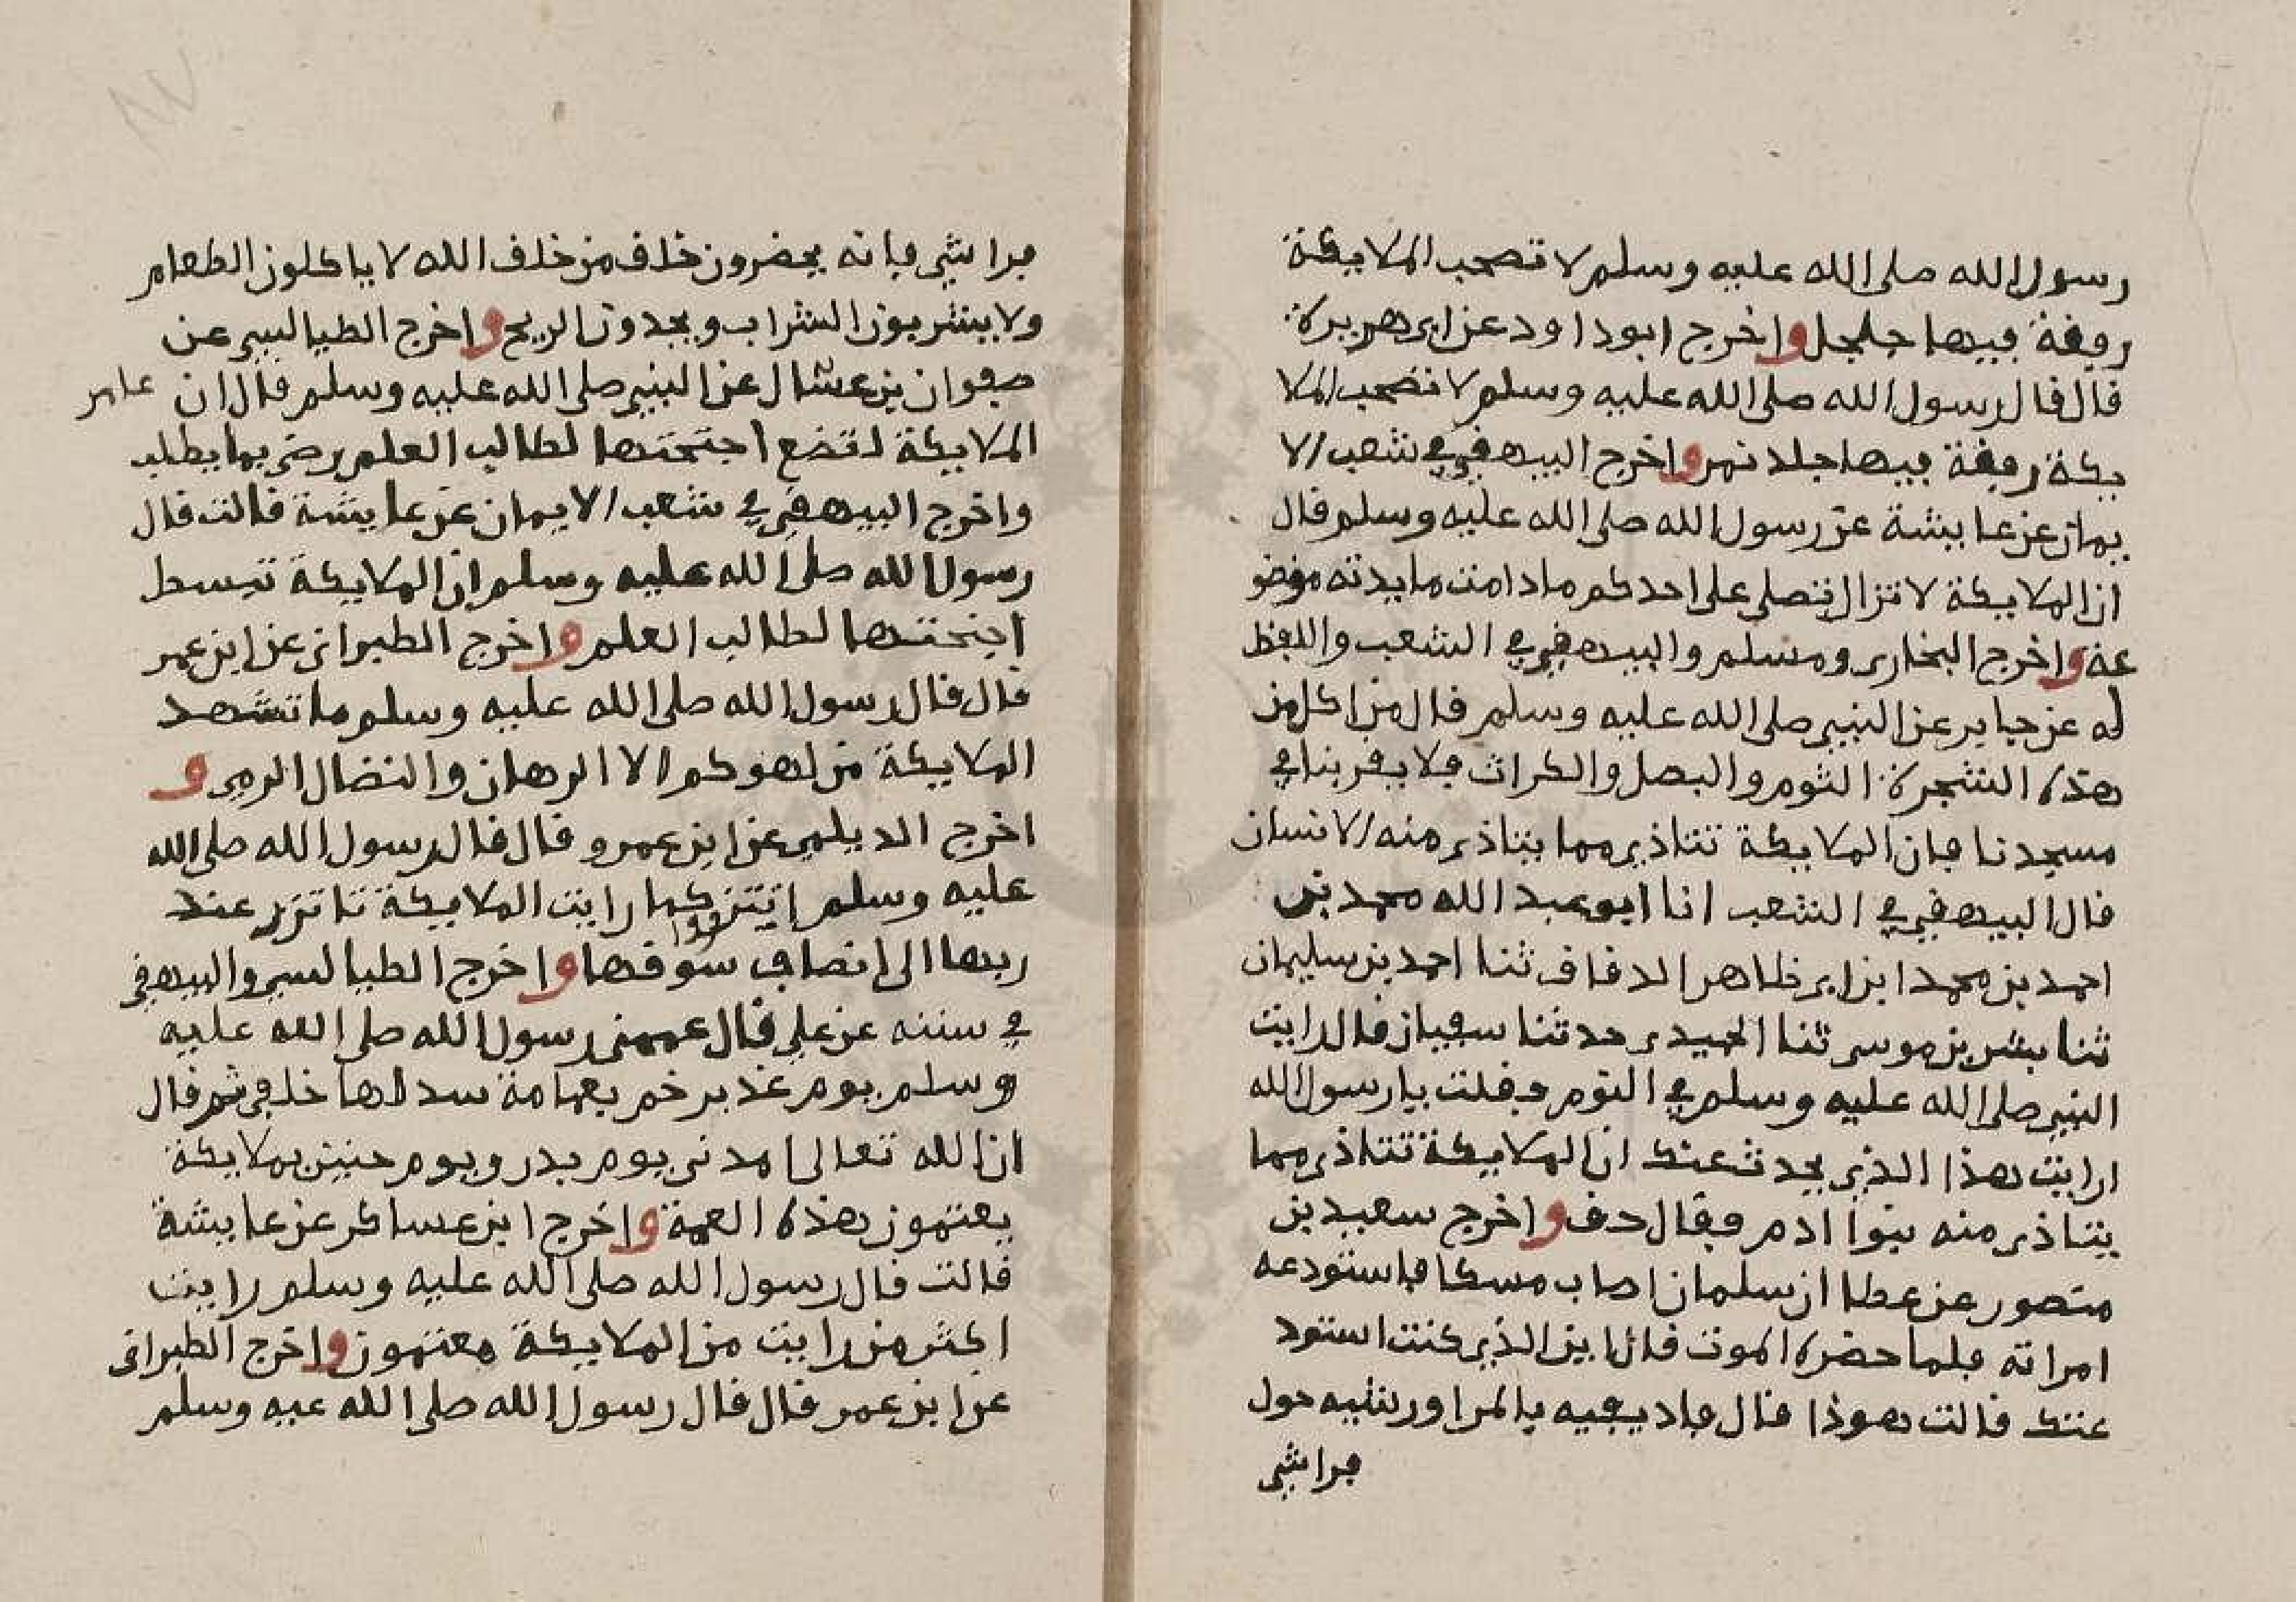 رسول الله صلى الله عليه وسلم لا تصحب الملايكة
رفقة فيها جلجل واخرج ابو داود عن ابي هريرة
قال قال رسول الله صلى الله عليه وسلم لا تصحب الملا
يكة رفقة فيها جلد نمر واخرج البيهقي في شعب الا
يمان عن عايشة عن رسول الله صلى الله عليه وسلم قال
ان الملايكة لا تزال تصلي على احدكم ما دامت مايدته موضو
عة واخرج البخاري ومسلم والبيهقي في الشعب واللفظ
له عن جابر عن النبي صلى الله عليه وسلم قال من اكل من
هذه الشجرة الثوم والبصل والكراث فلا يقربنا في
مسجدنا فان الملايكة تتاذي مما يتاذي منه الانسان
قال البيهقي في الشعب انا ابو عبد الله محمد بن
احمد بن محمد ابن ابي طاهر الدقاق ثنا احمد بن سليمان
ثنا بشر بن موسى ثنا الحميدي حدثنا سفيان قال رايت
النبي صلى الله عليه وسلم في النوم فقلت يا رسول الله
ارايت هذا الذي يحدث عنك ان الملايكة تتاذي مما
يتاذي منه بنوا ادم فقال حق واخرج سعيد بن
منصور عن عطا ان سلمان اصاب مسكا فاستودعه
امراته فلما حضره الموت قال اين الذي كنت استود
عتك قالت هوذا قال فاديفيه بالما ورشيه حول
فراشي
فراشي فانه يحضرون خلق من خلق الله لا ياكلون الطعام
ولا يشربون الشراب ويجدون الريح واخرج الطيالسي عن
صفوان بن عسال عن النبي صلى الله عليه وسلم قال ان
الملايكة لتضع اجنحتها لطالب العلم رضى بما يطلب
واخرج البيهقي في شعب الايمان عن عايشة قالت قال
رسول الله صلى الله عليه وسلم ان الملايكة تبسط
اجنحتها لطالب العلم واخرج الطبراني عن ابن عمر
قال قال رسول الله صلى الله عليه وسلم ما تشهد
الملايكة من لهوكم الا الرهان والنضال الرمي و
اخرج الديلمي عن ابن عمرو قال قال رسول الله صلى الله
عليه وسلم ايتزروا كما رايت الملايكة تاتزر عند
ربها الى انصاف سوقها واخرج الطيالسي والبيهقي
في سننه عن علي قال عممني رسول الله صلى الله عليه
وسلم يوم غدير خم بعمامة سدلها خلفي ثم قال
ان الله تعالى امدني يوم بدر ويوم حنين بملايكة
يعتمون هذه العمة واخرج ابن عساكر عن عايشة
قالت قال رسول الله صلى الله عليه وسلم رايت
اكثر من رايت من الملايكة معتمون واخرج الطبراني
عن ابن عمر قال قال رسول الله صلى الله عيه وسلم